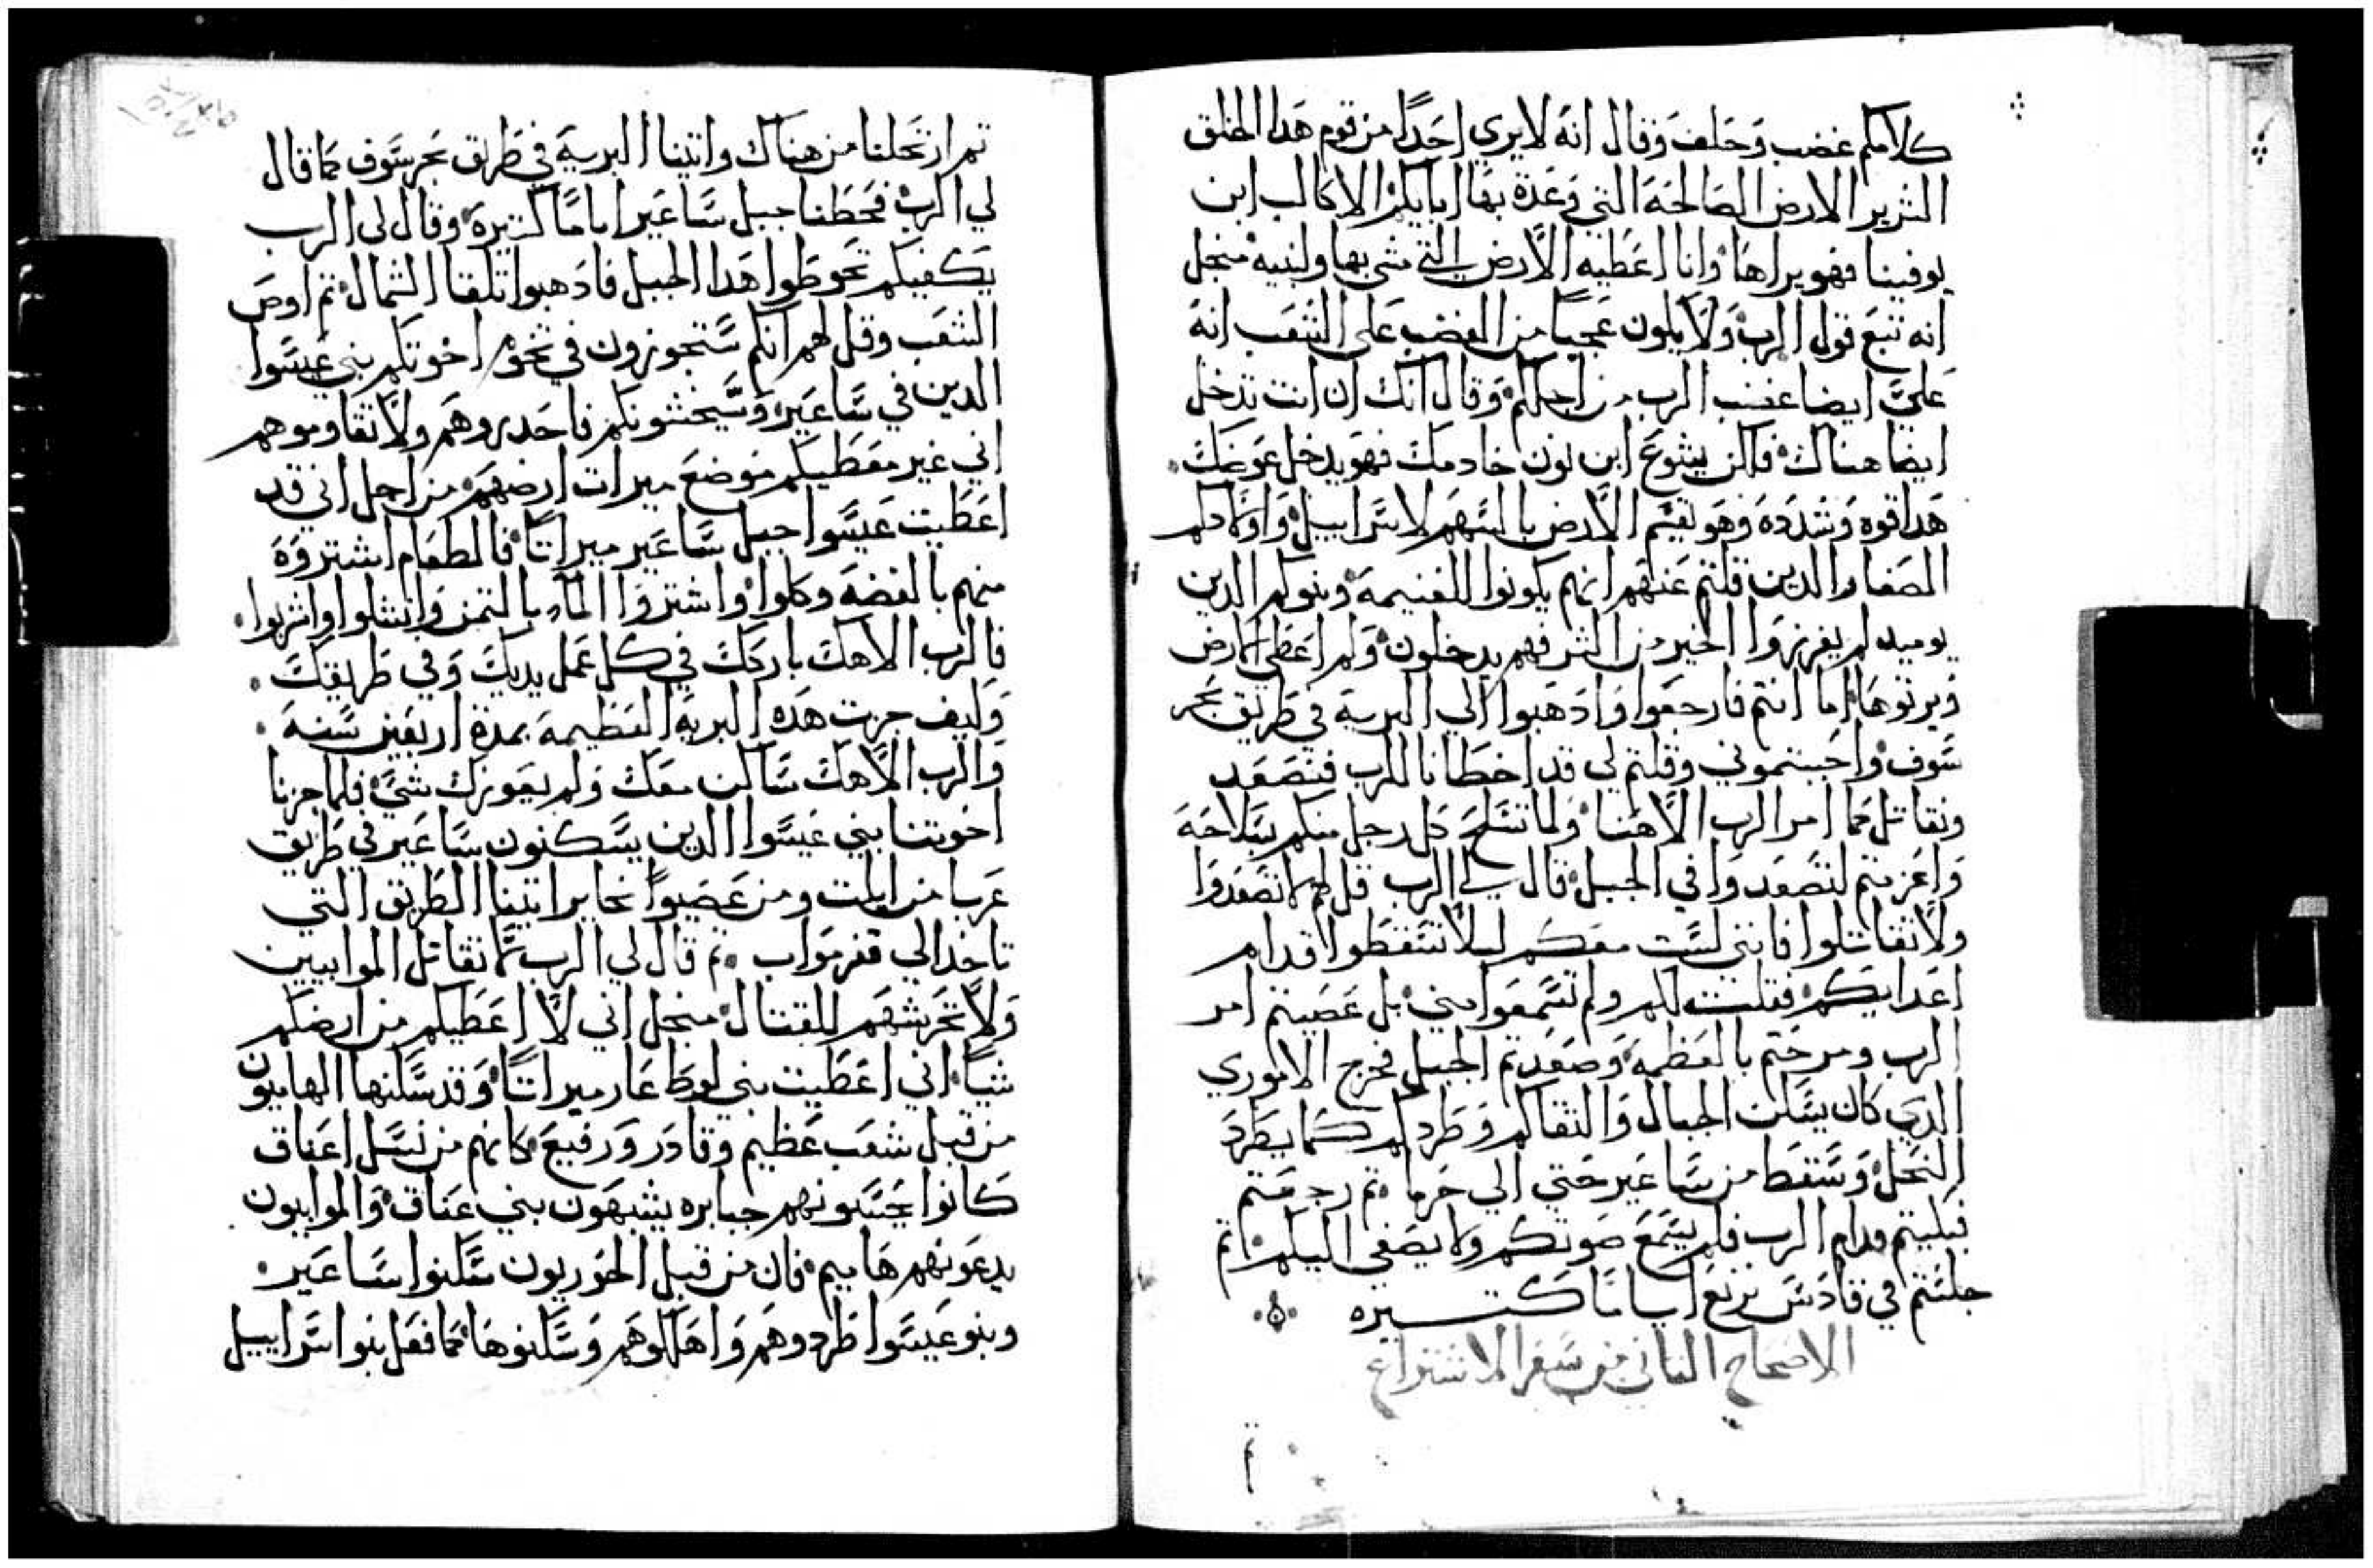 كلامكم غضب وحلف وقال انه لا يري احدًا من قوم هذا الخلق
الشرير الارض الصالحة التي وعدة بها ابايكم الا كالب ابن
يوفينا فهو يراها وانا اعطيه الارض التي مشي بها ولبنيه منجل
انه تبع قول الرب ولا يكون عجبًا من الغضب علي الشعب انه
عليَّ ايضا غضب الرب من اجلكم وقال انك ان انت تدخل
ايضا هناك فلكن يشوع ابن نون خادمك فهو يدخل عوضك
هدا قوه وشدده وهو يقسم الارض بالسهم لاسراييل واولادكم
الصغار الدين قلتم عنهم انهم يكونوا للغنيمة وبنوكم الدين
يوميد لم يفرزوا الخير من الشر فهم يدخلون ولهم اعطي الارض
ويرتوها اما انتم فارجعوا واذهبوا الي البرية في طريق بحر
سوف واجبتموني وقلتم لي قد اخطانا للرب فنصعد
ونقاتل كما امر الرب الاهنا ولما تسلح كل رجل منكم بسلاحه
واعزمتم لتصعدوا في الجبل قال لي الرب قل لهم لا تصعدوا
ولا تقاتلوا فانني لست معكم ليلا تسقطوا قدام
اعدايكم فقلت لكم ولم تسمعوا مني بل عصيتم امر
الرب ومرحتم بالعظمه وصعدتم الجبل فخرج الاموري
الدي كان يسكن الجبال والتقاكم وطردكم كما يطرد
النحل وسقط من ساعير حتي الي حرما ثم رجعتم
فبكيتم قدام الرب فلم يسمع صوتكم ولا يصغي اليكم ثم
جلستم في قادس برنع اياما كتيره
الاصحاح التاني من سفر الاشتراع
تم ارتحلنا من هناك واتينا البرية في طريق بحر سوف كما قال
لي الرب فحطنا جبل ساعير اياما كتيرة وقال لي الرب
يكفيكم تحوطوا هدا الجبل فادهبوا تلقا الشمال تم اوص
الشعب وقل لهم انكم ستجوزون في تخوم اخوتكم بني عيسوا
الدين في ساعير وسيخشونكم فاحدروهم ولا تقاوموهم
اني غير معطيكم موضع ميرات ارضهم من اجل اني قد
اعطيت عيسوا جبل ساعير ميراتًا فالطعام اشتروه
منهم بالفضه وكلوا واشتروا الماء بالتمن وانتشلوا واشربوا
فالرب الاهك باركك في كل عمل يديك وفي طريقك
وكيف جزت هده البريه العظيمة بمدة اربعين سنه
والرب الاهك ساكن معك ولم يعوزك شيء فلما جزنا
اخوتنا بني عيسوا الدين يسكنون ساعير في طريق
عربا من ايلت ومن عصيوا نجابر اتينا الطريق التي
تاخد الي قفر مواب تم قال لي الرب لا تقاتل الموابيين
ولا تحرشهم للقتال منجل اني لا اعطيكم من ارضهم
شيًا اني اعطيت بني لوط عار ميراتًا وقد سكنها الهاميون
من قبل شعب عظيم وقادر ورفيع كانهم من نسل اعناق
كانوا يحسبونهم جبابره يشبهون بني عناق والموابيون
يدعونهم هاميم فان من قبل الحوريون سكنوا ساعير
وبنو عيسوا طردوهم واهلكوهم وسكنوها كما فعل بنوا اسراييل